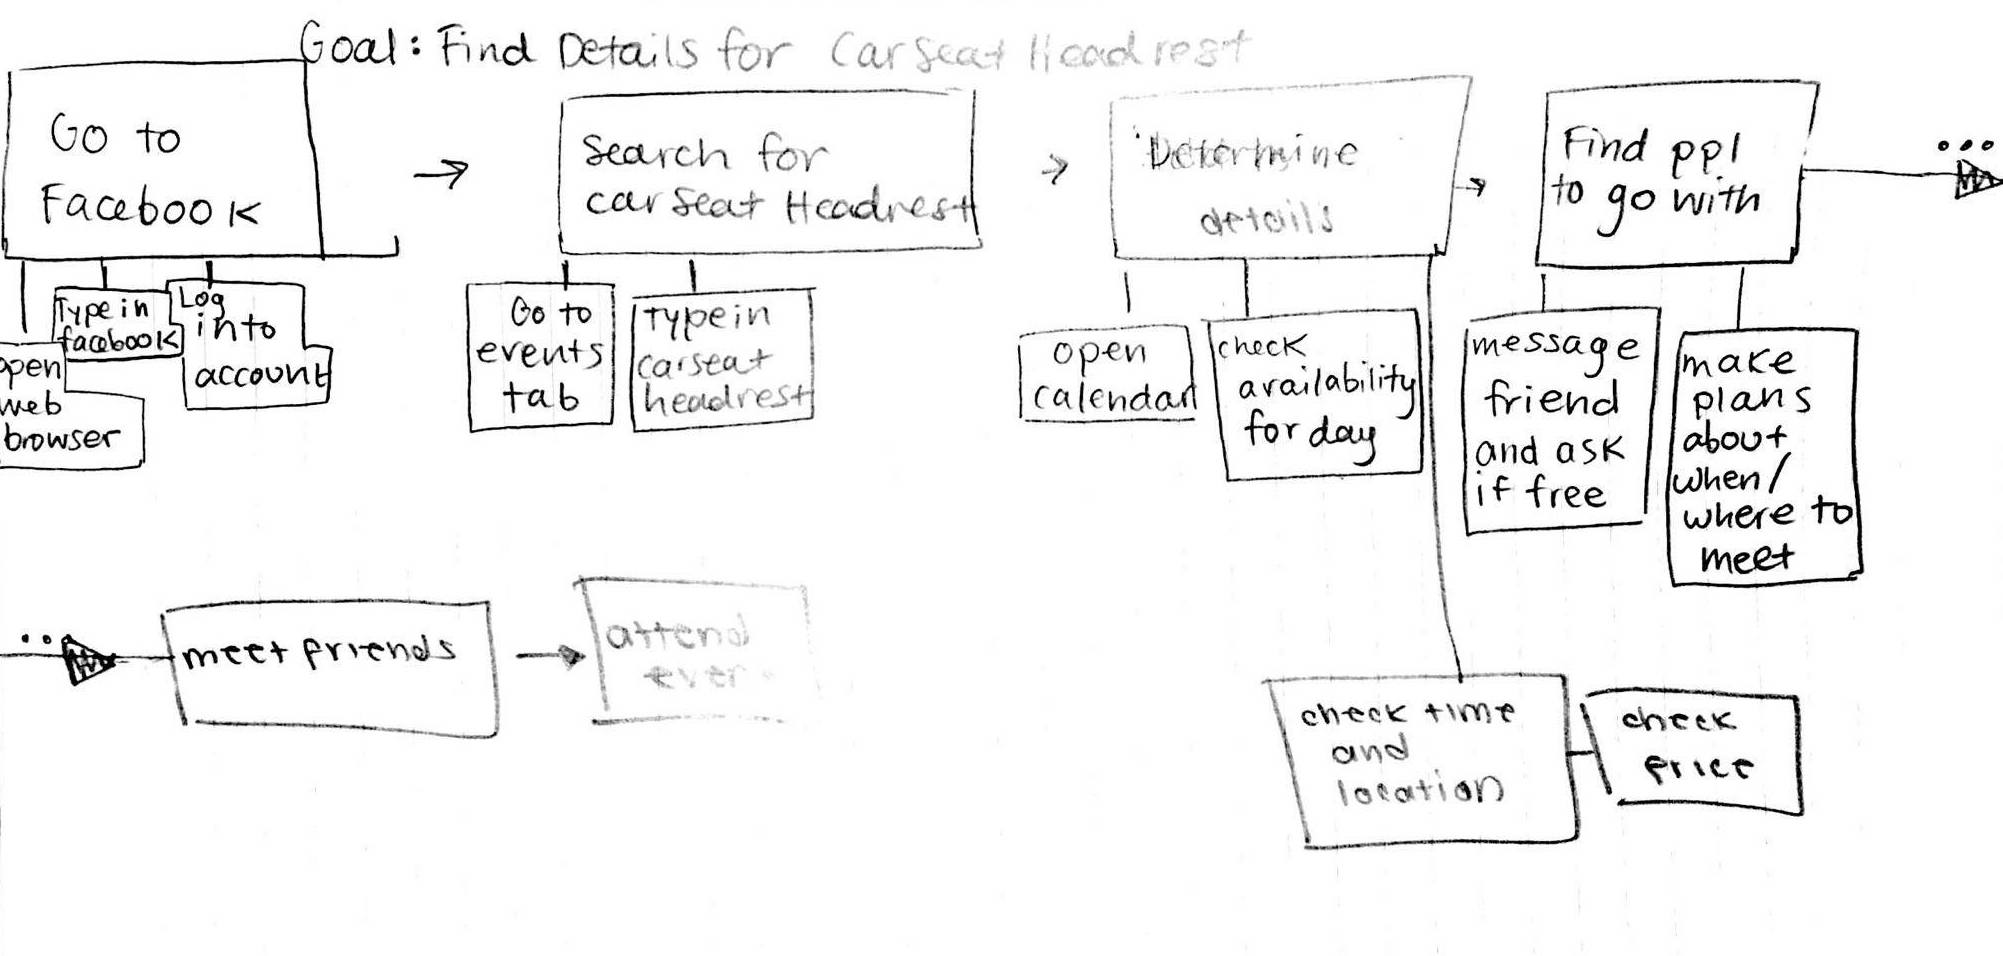 Goal: Find Details for Car Seat Headrest
Go to
Facebook
Search for
car Seat Headrest
Determine
details
Find ppl
to go with
...
open
web
browser
Type in
facebook
Log
into
account
Go to
events
tab
Type in
carseat
headrest
open
calendar
check
availability
for day
message
friend
and ask
if free
make
plans
about
when/
where to
meet
...
meet friends
attend
check time
and
location
check
price